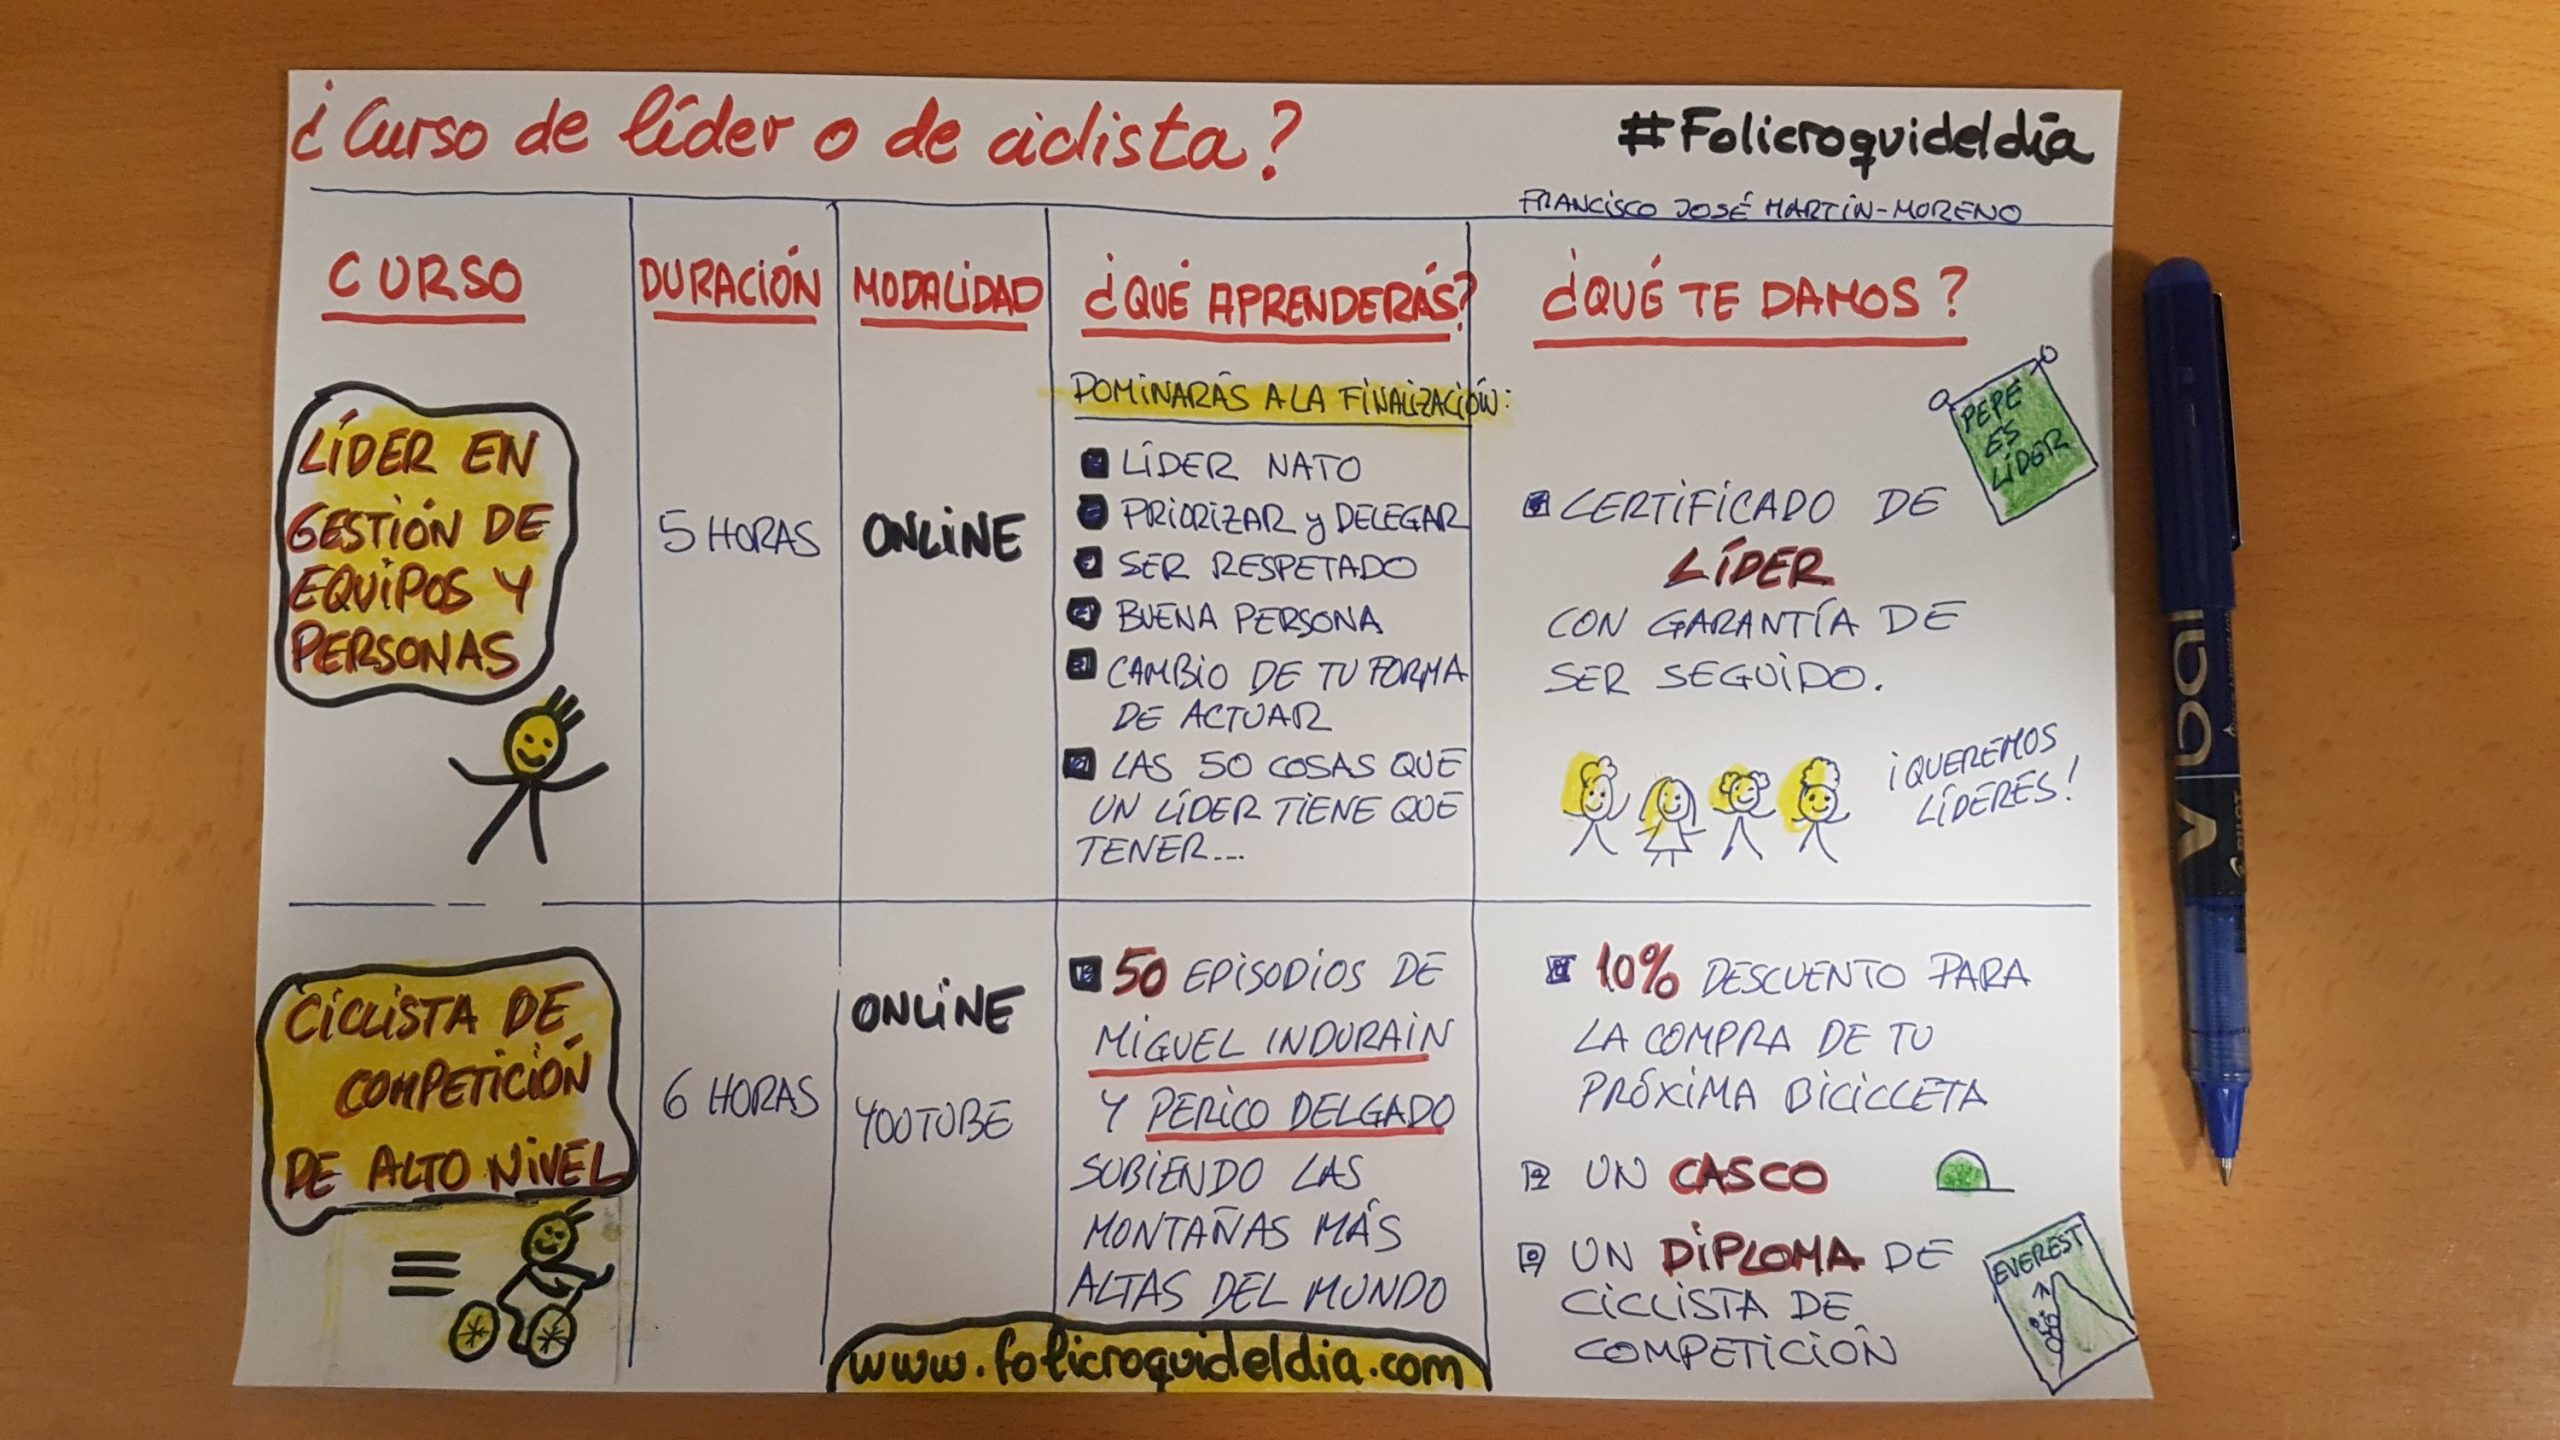 ¿Curso de líder o de ciclista?
#Folicroquideldía
FRANCISCO JOSÉ MARTÍN-MORENO
CURSO
DURACIÓN
MODALIDAD
¿QUÉ APRENDERÁS?
¿QUÉ TE DAMOS?
LÍDER EN
GESTIÓN DE
EQUIPOS Y
PERSONAS
5 HORAS
ONLINE
DOMINARÁS A LA FINALIZACIÓN:
LÍDER NATO
PRIORIZAR Y DELEGAR
SER RESPETADO
BUENA PERSONA
CAMBIO DE TU FORMA
DE ACTUAR
LAS 50 COSAS QUE
UN LÍDER TIENE QUE
TENER...
PEPE
ES
LÍDER
CERTIFICADO DE
LÍDER
CON GARANTÍA DE
SER SEGUIDO.
¡QUEREMOS
LÍDERES!
CICLISTA DE
COMPETICIÓN
DE ALTO NIVEL
6 HORAS
ONLINE
YOUTUBE
50 EPISODIOS DE
MIGUEL INDURAIN
Y PERICO DELGADO
SUBIENDO LAS
MONTAÑAS MÁS
ALTAS DEL MUNDO
10% DESCUENTO PARA
LA COMPRA DE TU
PRÓXIMA BICICLETA
UN CASCO
UN DIPLOMA DE
CICLISTA DE
COMPETICIÓN
EVEREST
www.folicroquideldia.com
V bal
PILOT